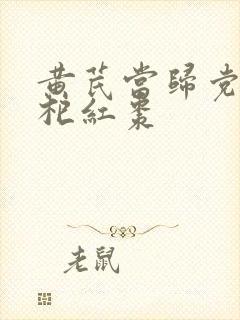 黄芪當歸党
杞紅棗
老鼠